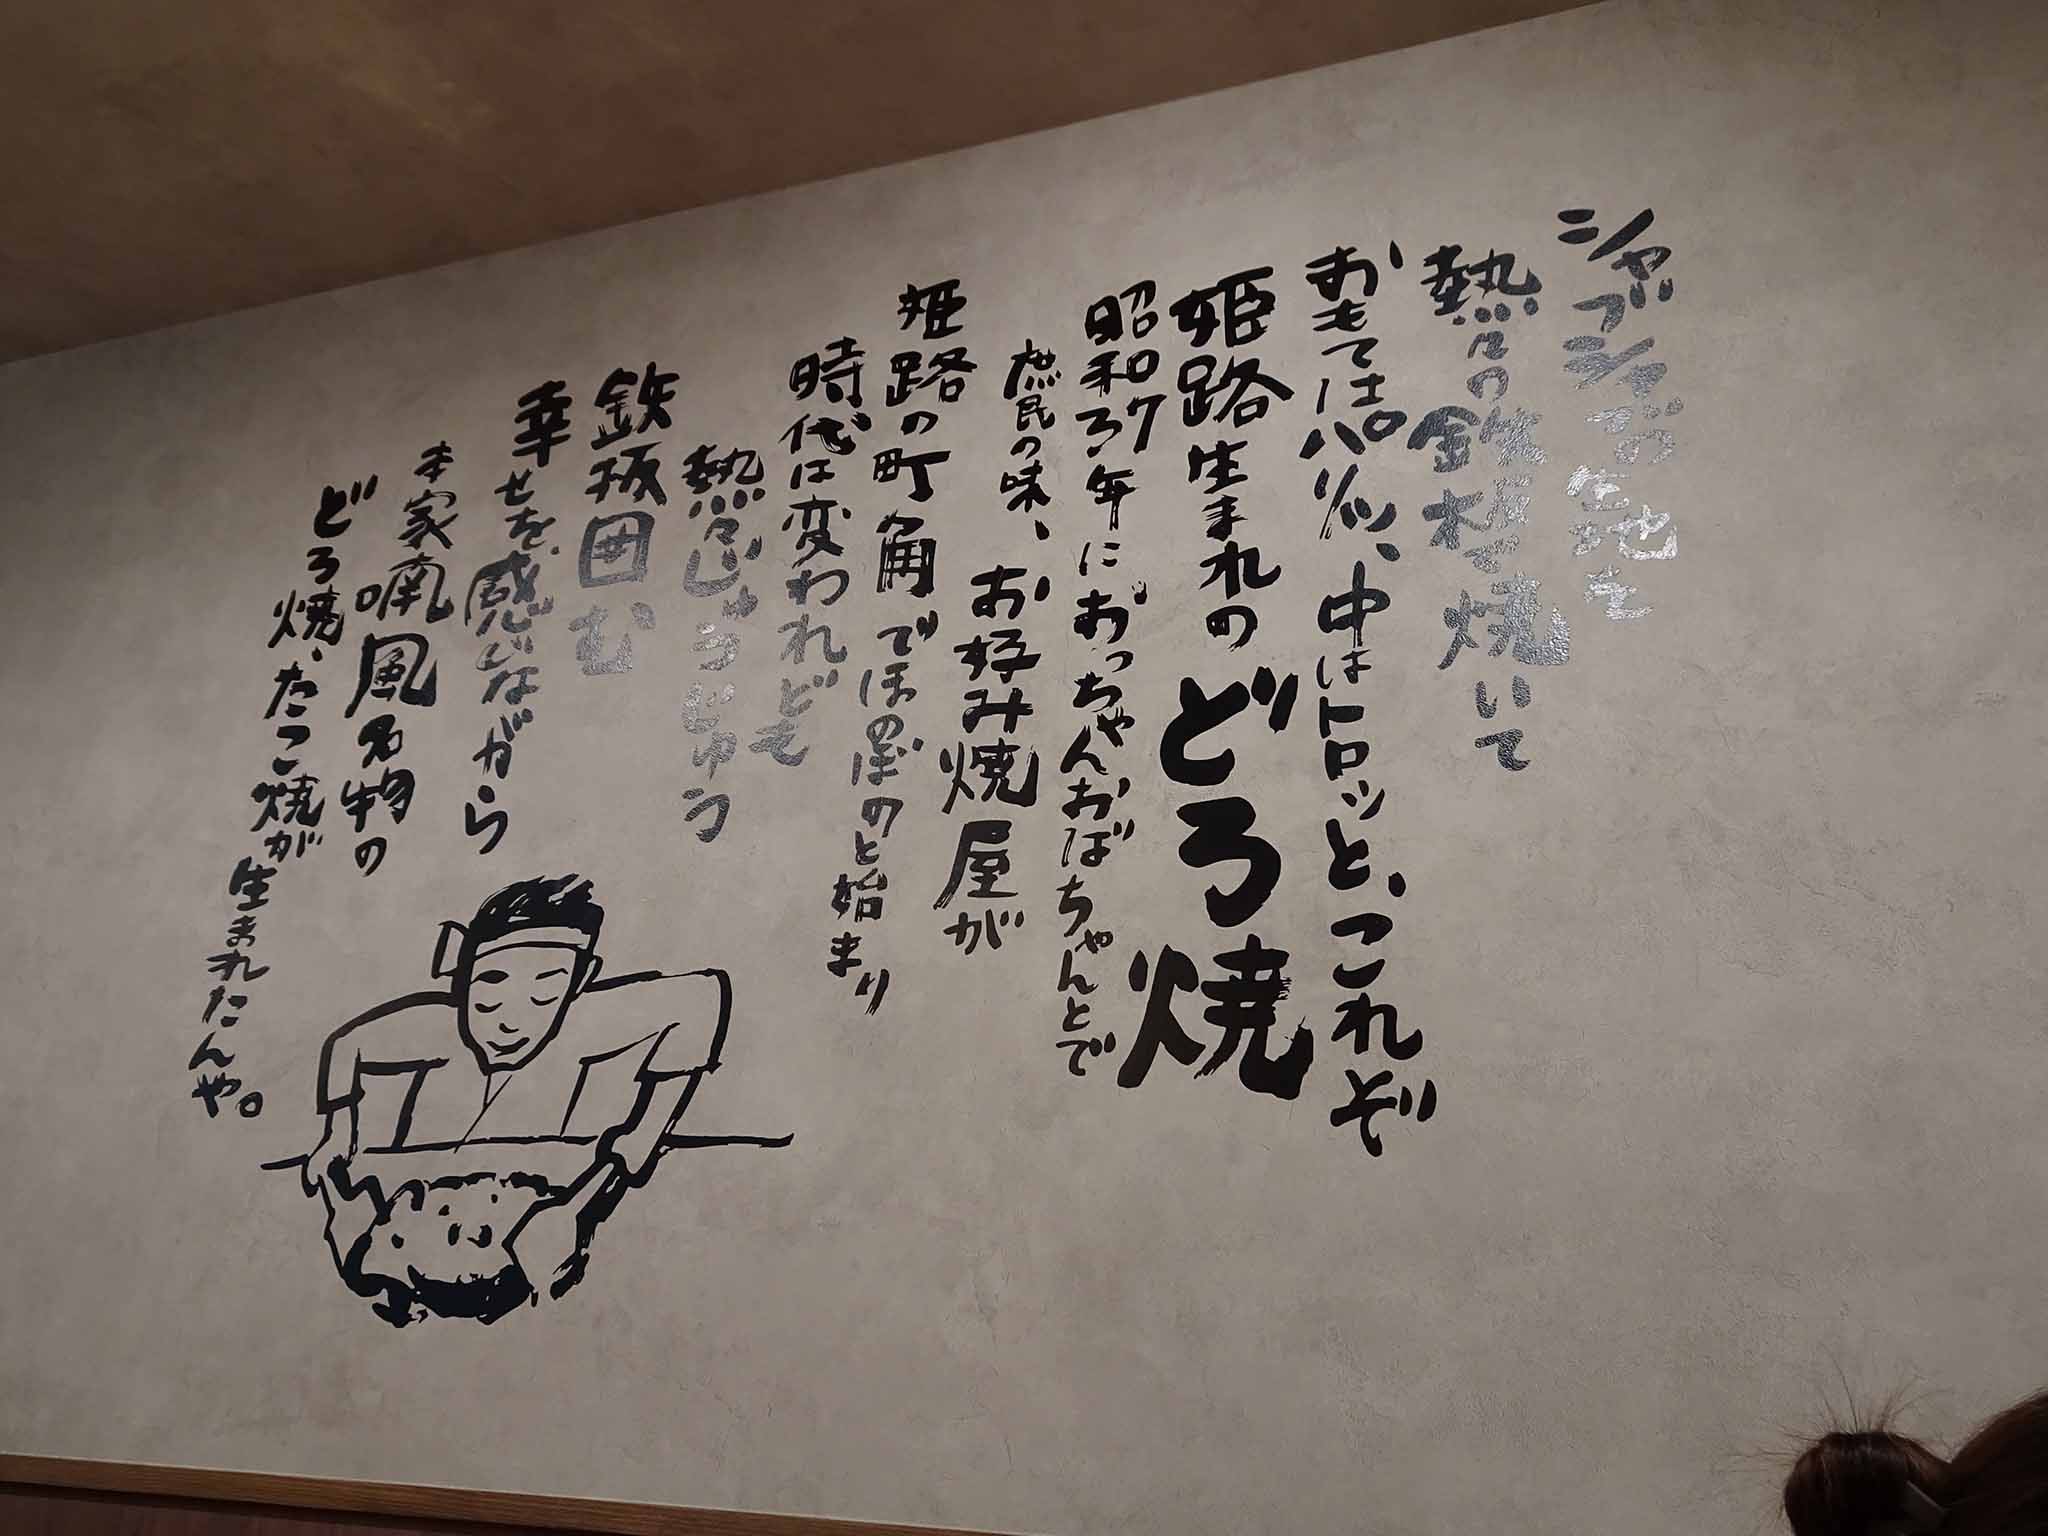 シャブシャブの生地を
熱々の鉄板で焼いて
おもてはパリッ、中はトロッと、これぞ
姫路生まれのどろ焼
昭和37年におっちゃんおばちゃんとで
庶民の味、お好み焼屋が
姫路の町角でほのぼのと始まり
時代は変われども
熱々じゅうじゅう
鉄板囲む
幸せを感じながら
本家喃風名物の
どろ焼、たこ焼が生まれたんや。